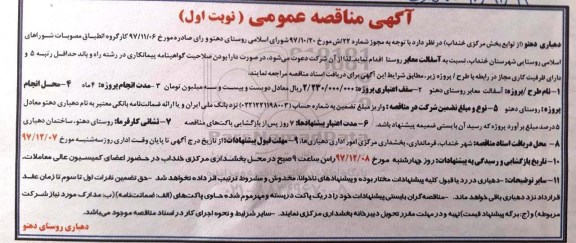 آگهی مناقصه عمومی ( نوبت اول )
دهیاری دهنو (از توابع بخش مرکزی خنداب) در نظر دارد با توجه به مجوز شماره ۲۲/ش مورخ ۹۷/۱۰/۲۰ شورای اسلامی روستای دهنو و رای صادره مورخ ۹۷/۱۱/۰۶ کارگروه انطباق مصوبات شوراهای
اسلامی روستایی شهرستان خنداب، نسبت به آسفالت معابر روستا اقدام نماید. لذا از آن شرکت دعوت می‌شود، در صورت دارا بودن صلاحیت گواهینامه پیمانکاری در رشته راه و باند حداقل رتبه ۵ و
دارای ظرفیت کاری مجاز در رابطه با طرح / پروژه زیر، مطابق شرایط این آگهی برای دریافت اسناد مناقصه مراجعه نمایند.
۱- نام طرح / پروژه: آسفالت معابر روستای دهنو ۲- سقف اعتباری پروژه: ۲/۲۳۰/۰۰۰/۰۰۰ ریال معادل دویست و بیست و سه میلیون تومان ۳- مدت انجام پروژه: ۴ ماه ۴- محل انجام
پروژه: روستای دهنو ۵- نوع و مبلغ تضمین شرکت در مناقصه: واریز مبلغ تضمین به شماره حساب نزد بانک ملی ایران و یا ارائه ضمانتنامه بانکی معتبر به نام دهیاری دهنو معادل
۵ درصد مبلغ برآورد پروژه که رسید آن بایستی ضمیمه پیشنهاد باشد. ۶- مدت اعتبار پیشنهادها: ۷ روز پس از بازگشایی پاکت‌های مناقصه ۷- نشانی کارفرما: روستای دهنو، ساختمان دهیاری
۸- محل دریافت اسناد مناقصه: شهر خنداب، فرمانداری، بخشداری مرکزی، امور اداری دهیاری‌ها. ۹- مهلت قبول پیشنهادات: از تاریخ درج آگهی تا پایان وقت اداری روز سه‌شنبه مورخ ۹۷/۱۲/۰۷
۱۰- تاریخ بازگشایی و رسیدگی به پیشنهادات: روز چهارشنبه مورخ ۹۷/۱۲/۰۸ راس ساعت ۹ صبح در محل بخشداری مرکزی خنداب در حضور اعضای کمیسیون عالی معاملات.
۱۱- سایر توضیحات: -دهیاری در رد یا قبول کلیه پیشنهادات مختار بوده و پیشنهادهای ناخوانا، مخدوش و مشروط ترتیب اثر داده نخواهد شد -حق تضمین نفرات اول تا سوم تا زمان عقد
قرارداد نزد دهیاری باقی خواهد ماند. -مناقصه‌گران بایستی پیشنهادات خود را در یک پاکت دربسته و مهر و موم شده حاوی پاکت‌های (الف: ضمانتنامه) (ب: مدارک مورد نیاز شرکت
مربوطه) و (ج: برگه پیشنهاد قیمت) تهیه و در مهلت مقرر تحویل دبیرخانه بخشداری مرکزی نمایند. -سایر شرایط و نحوه اجرای کار در اسناد مناقصه موجود می‌باشد.
دهیاری روستای دهنو